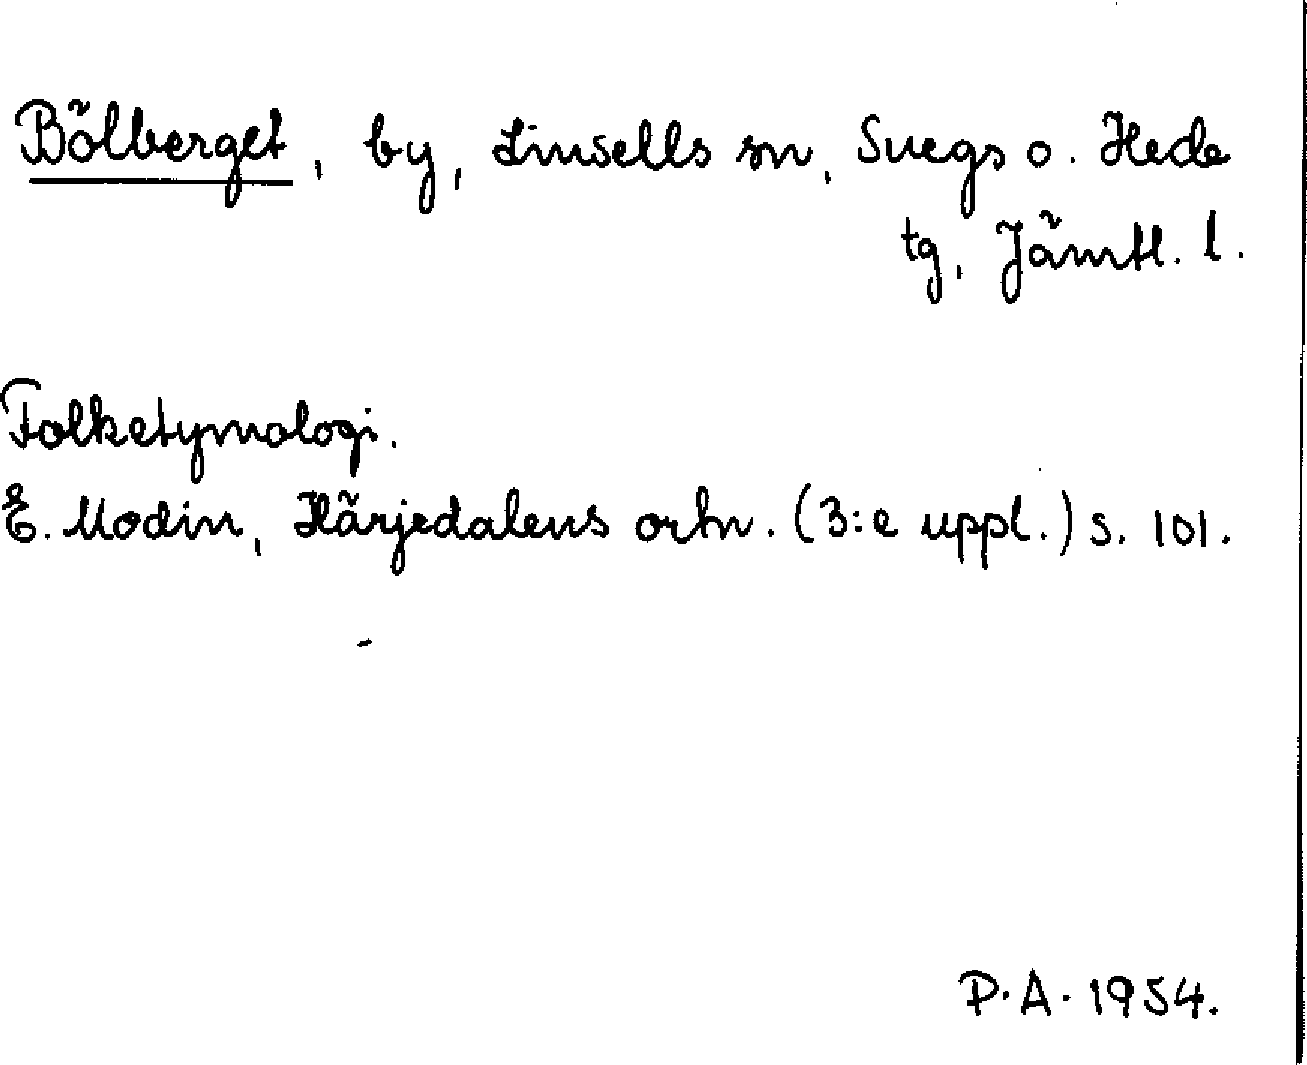 Bölberget, by, Linsells sn, Svegs o. Hede
tg, Jämtl. l.
Folketymologi.
E. Modin, Härjedalens ortn. (3:e uppl.) s. 101.
P.A. 1954.